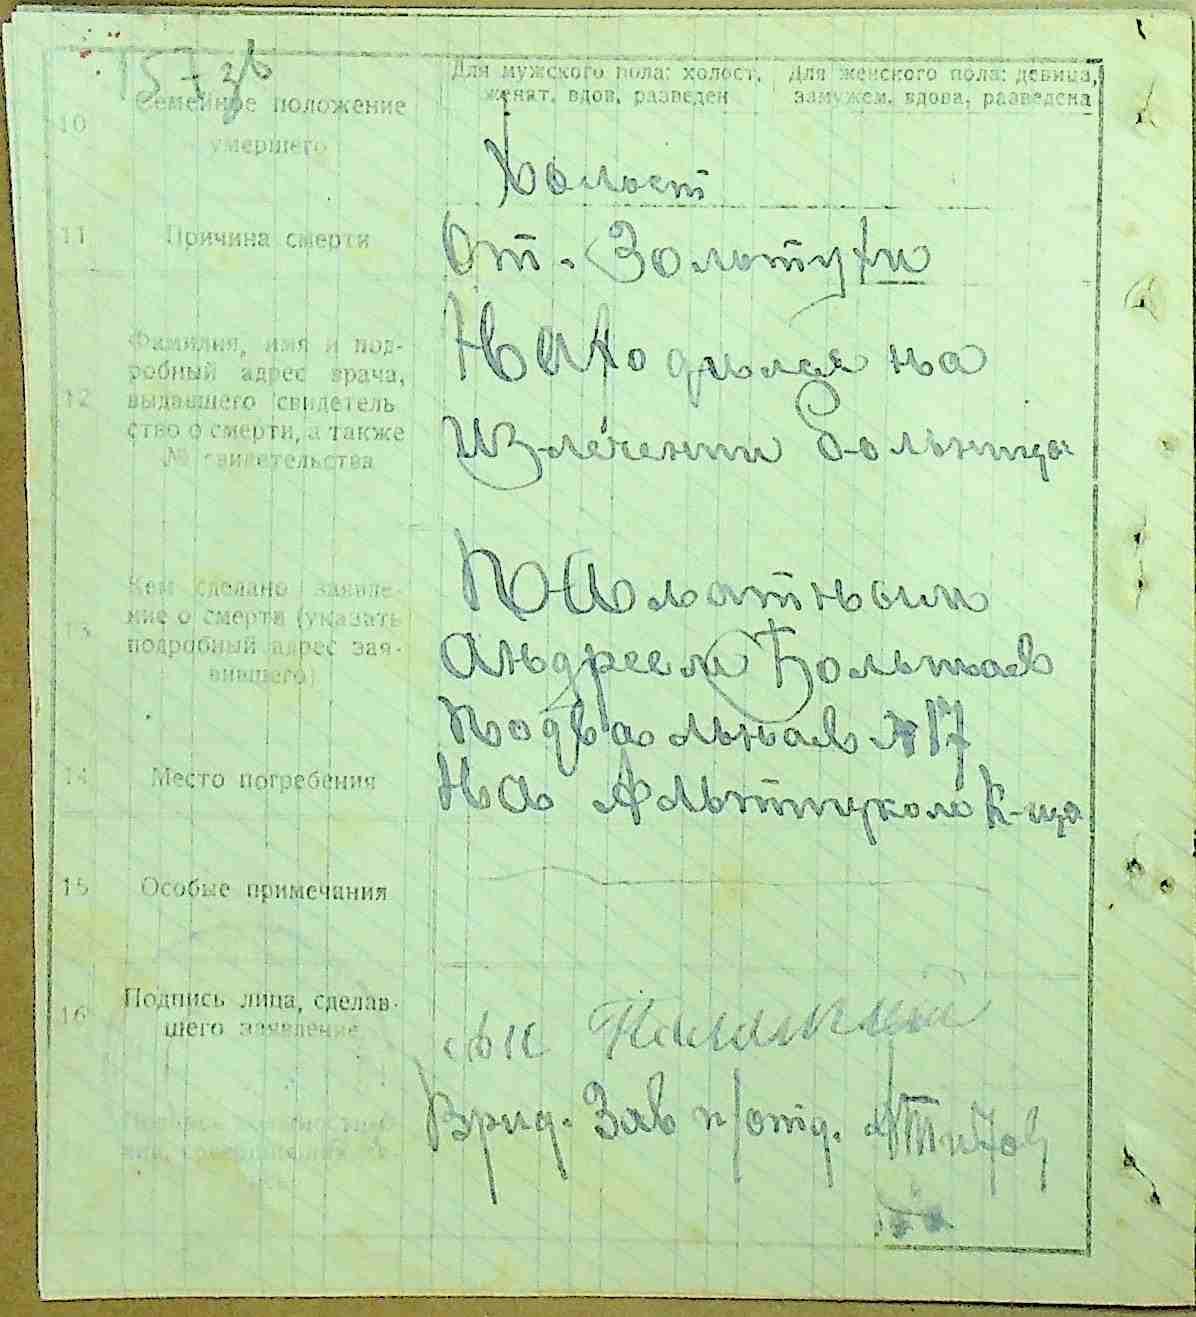 157 зв
Для мужского пола: холост, женат, вдов, разведен
Для женского пола: девица, замужем, вдова, разведена
10 Семейное положение умершего
Холост
11 Причина смерти
От. Золотухи
12 Фамилия, имя и под-
робный адрес врача,
выдавшего свидетель
ство о смерти, а также
№ свидетельства
Находился на
Излечении больницы
13 Кем сделано заявле-
ние о смерти (указать
подробный адрес зая-
вившего)
Андреем Большая
Подвальная № 17
14 Место погребения
На К-ща
15 Особые примечания
16 Подпись лица, сделав-
шего заявление
Врид. Зав п/отд.